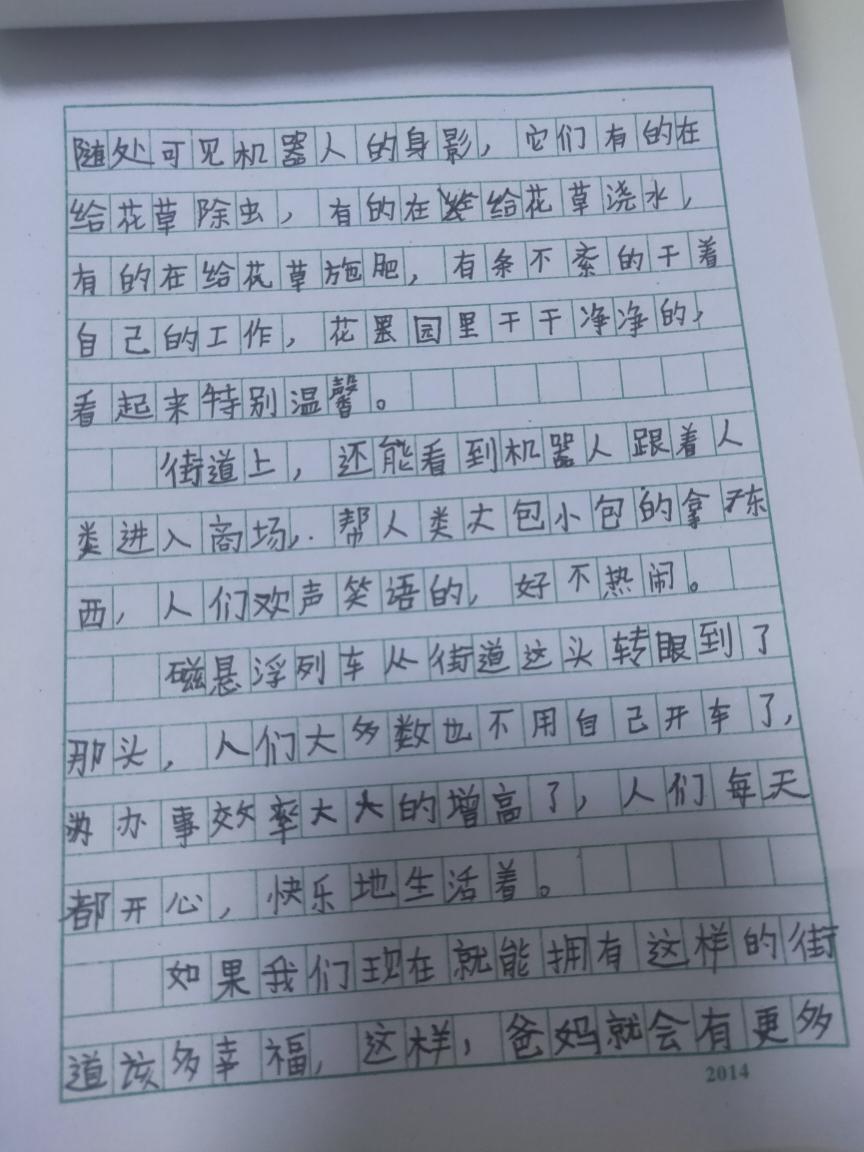 随处可见机器人的身影，它们有的在
给花草除虫，有的在给花草浇水，
有的在给花草施肥，有条不紊的干着
自己的工作，花园里干干净净的，
看起来特别温馨。
街道上，还能看到机器人跟着人
类进入商场，帮人类大包小包的拿东
西，人们欢声笑语的，好不热闹。
磁悬浮列车从街道这头转眼到了
那头，人们大多数也不用自己开车了，
办事效率大大的增高了，人们每天
都开心，快乐地生活着。
如果我们现在就能拥有这样的街
道该多幸福，这样，爸妈就会有更多
2014